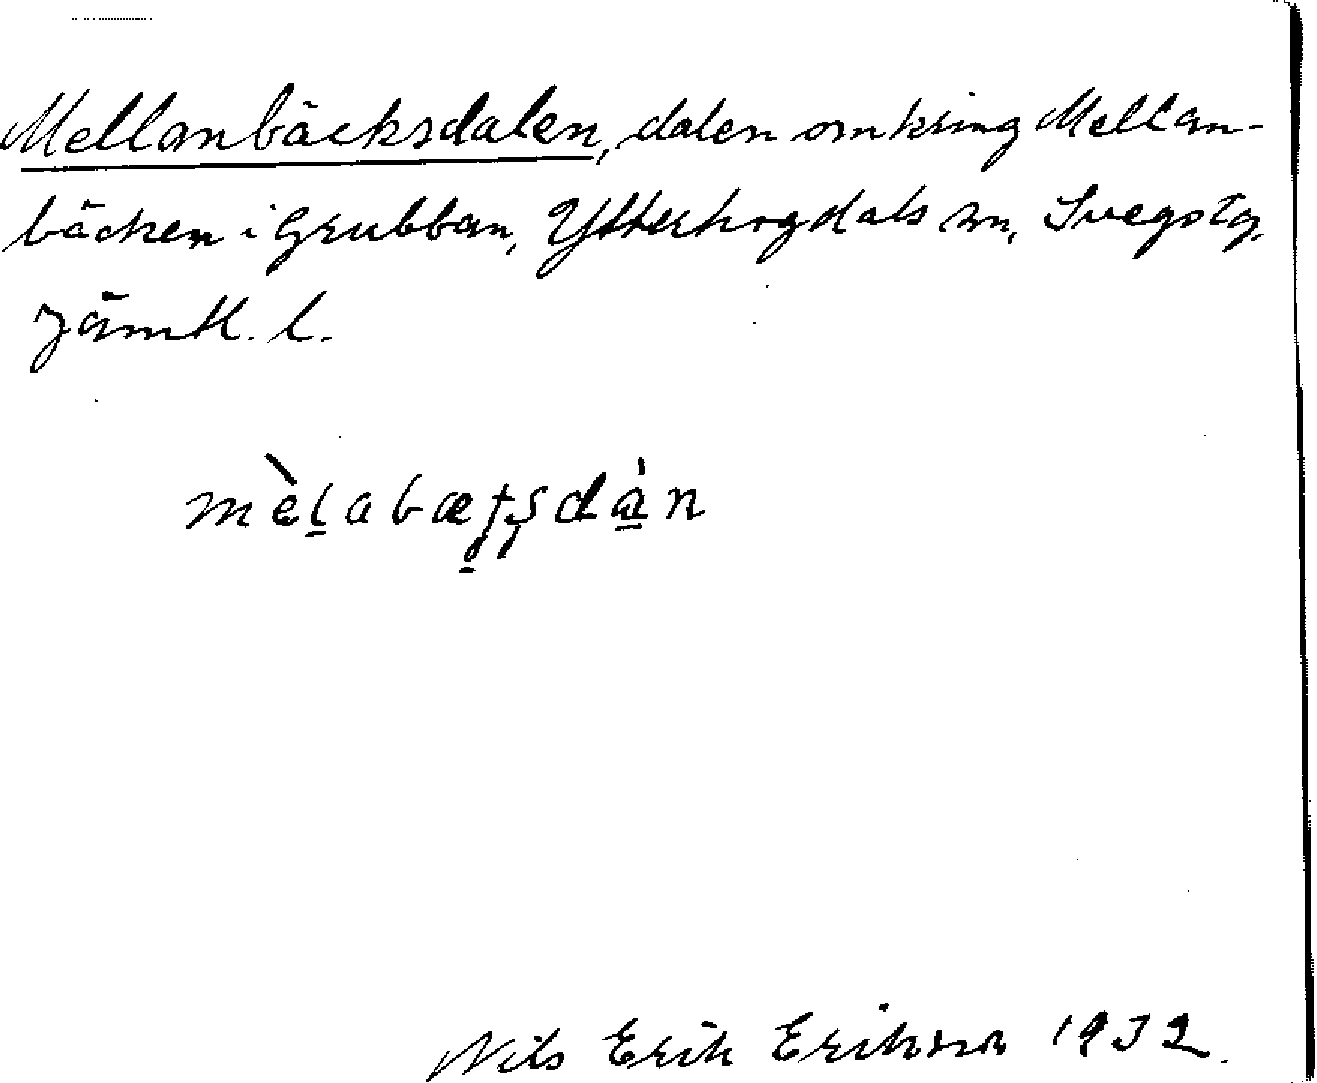 Mellanbäcksdalen, dalen omkring Mellan-
bäcken i Grubban, Ytterhogdals sn, Svegs tg,
Jämtl. l.
Nils Erik Erikson 1932.